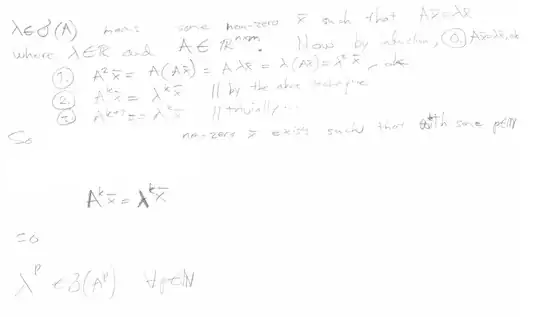 λ∈σ(A) means some non-zero x̄ such that Ax̄=λx̄
where λ∈ℝ and A∈ℝⁿˣⁿ. Now by induction, ⓪ Ax̄=λx̄, ok
① A²x̄ = A(Ax̄) = Aλx̄ = λ(Ax̄) = λ²x̄, ok
② Aᵏx̄ = λᵏx̄ // by the above technique
③ Aᵏ⁺¹x̄ = λᵏx̄ // trivially...
So non-zero x̄ exists such that with some p∈ℕ
Aᵏx̄ = λᵏx̄
=0
λᵖ ∈ σ(Aᵖ) ∀p∈ℕ